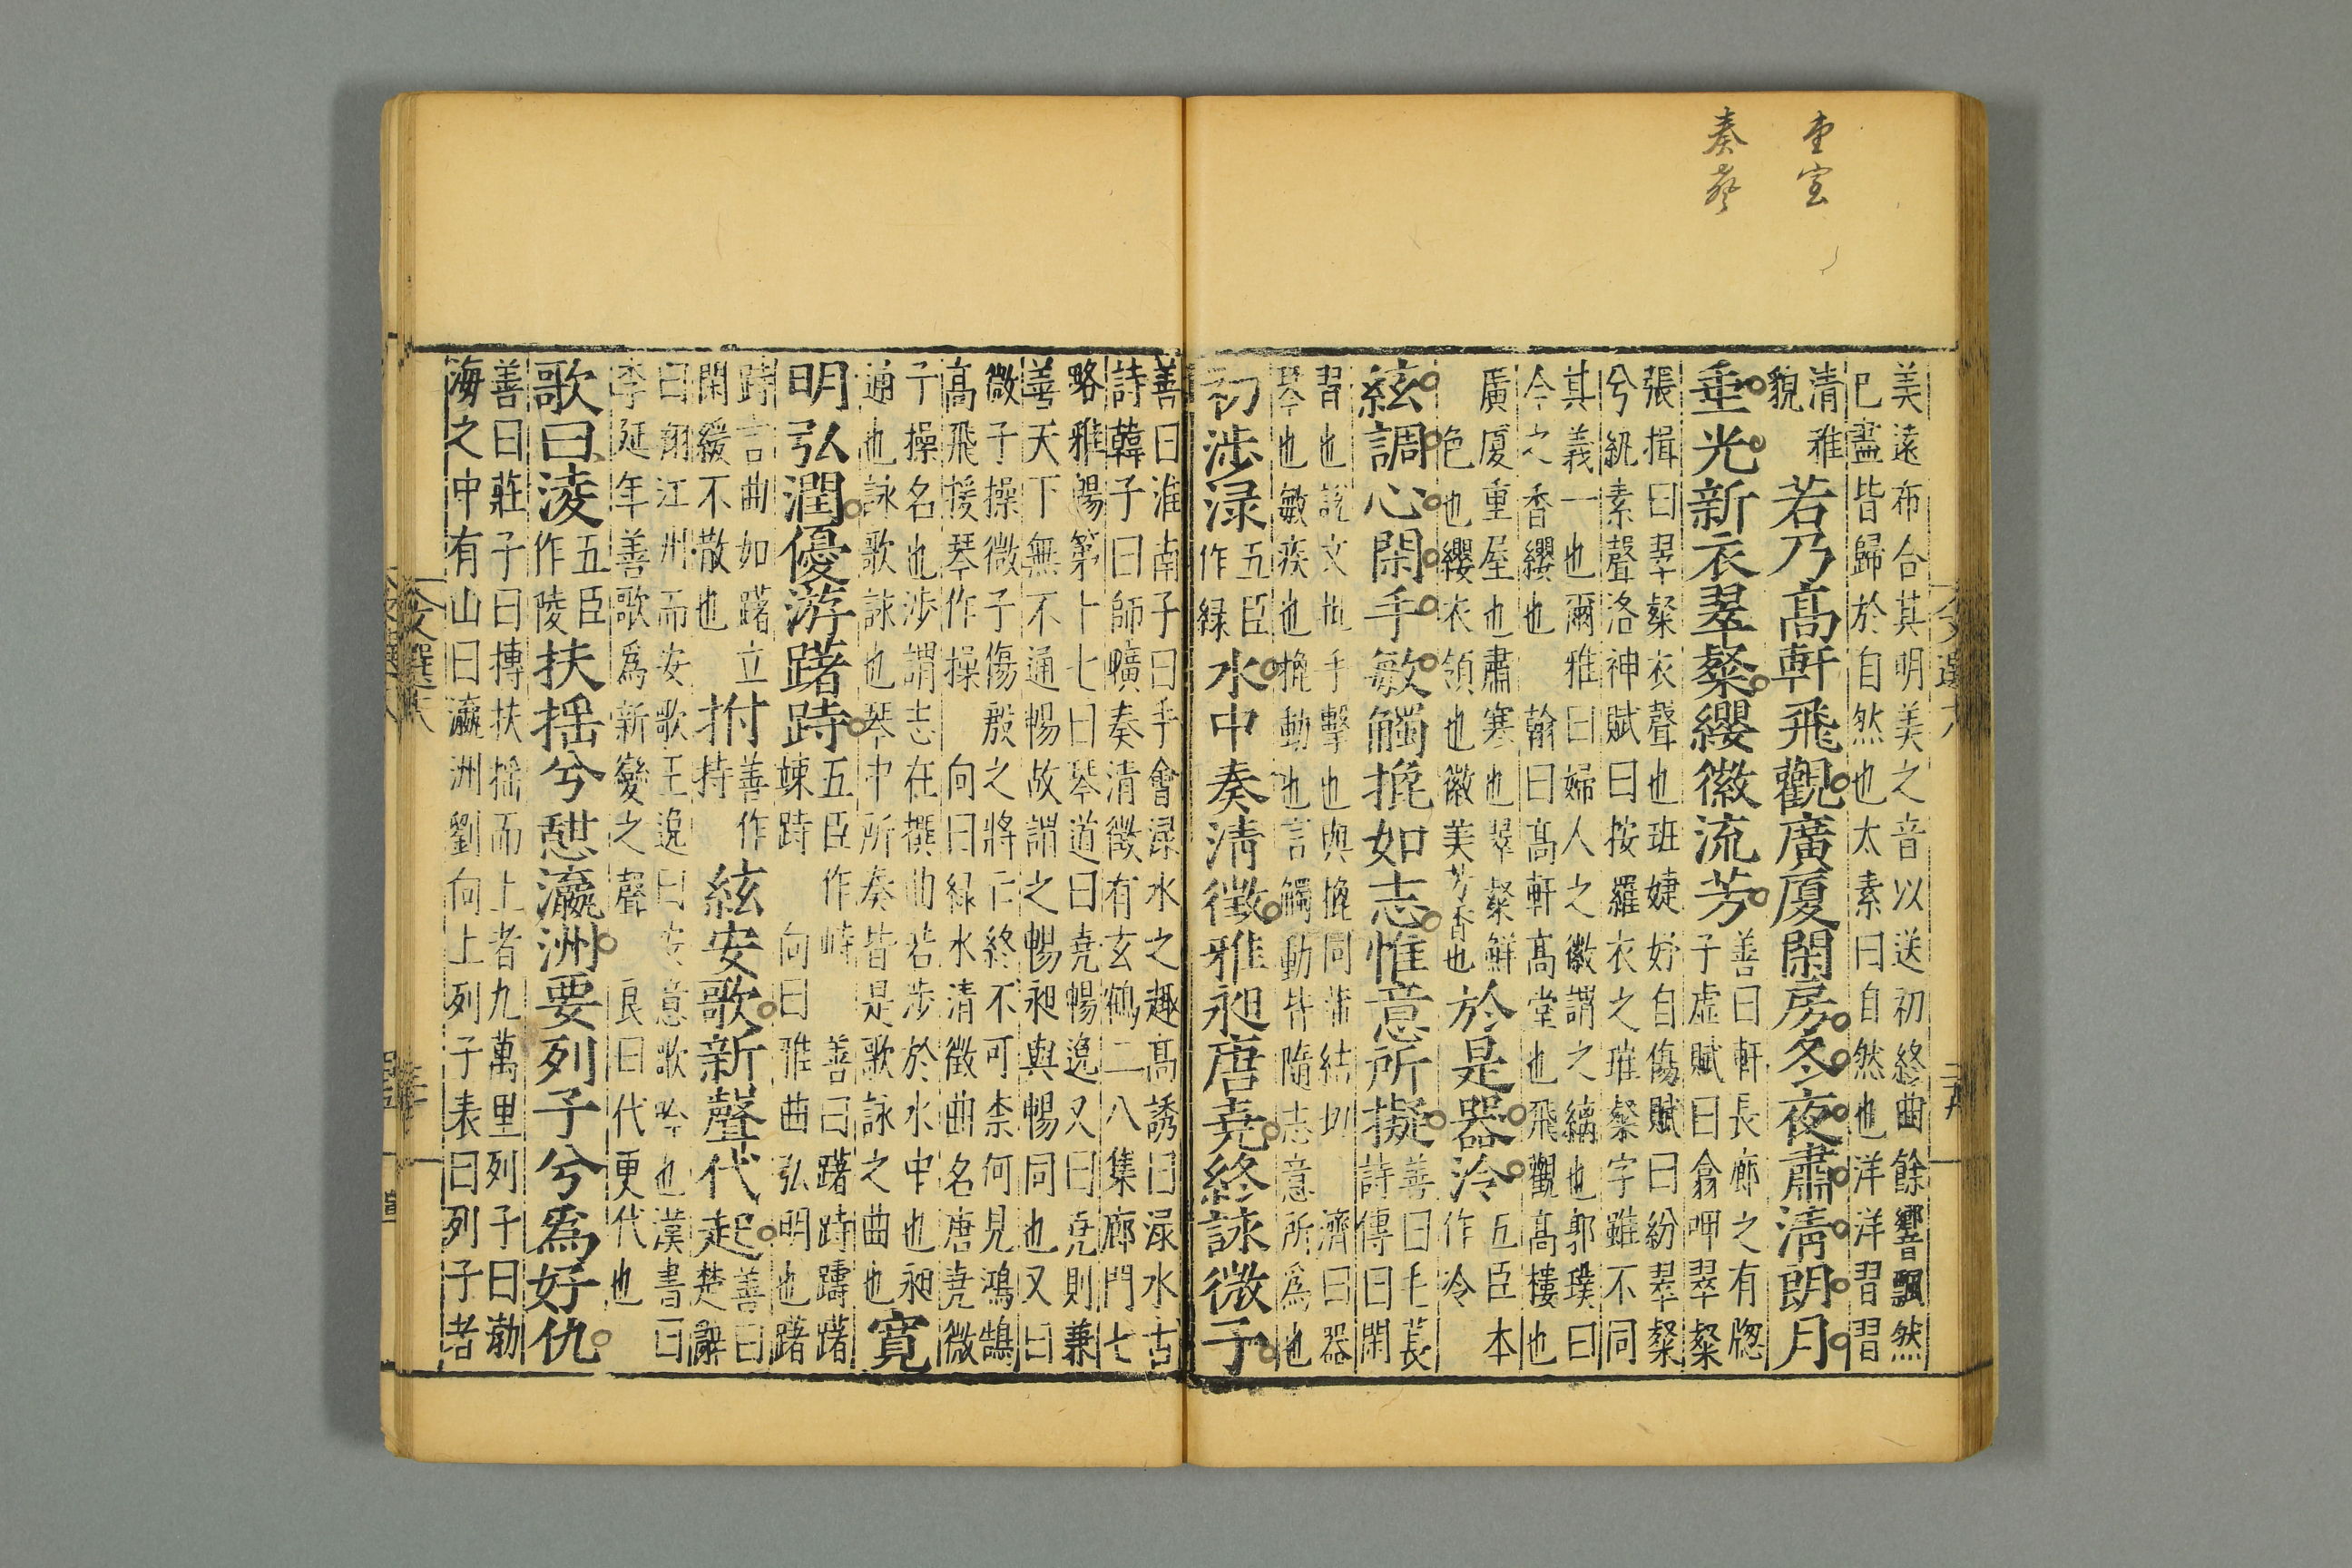 美遠布合其明美之音以送初終曲餘響飄然
已盡皆歸於自然也太素曰自然也洋洋習習
清雅
貌
若乃高軒飛觀廣廈閑房冬夜肅清朗月
垂光新衣翠粲纓徽流芳
善曰軒長廊之有牎
子虛賦曰翕呷翠粲
張揖曰翠粲衣聲也班婕妤自傷賦曰紛翠粲
兮紈素聲洛神賦曰按羅衣之璀粲字雖不同
其義一也爾雅曰婦人之徽謂之縭也郭璞曰
今之香纓也 翰曰高軒高堂也飛觀高樓也
廣厦重屋也肅寒也翠粲鮮
色也纓衣領也徽美芳香也
於是器冷
五臣本
作冷
絃調心閑手敏觸㧢如志惟意所擬
善曰毛萇
詩傳曰閑
習也說文㧢手擊也與㧢同蒲結切 濟曰器
琴也敏疾也㧢動也言觸動皆隨志意所為也
初涉渌
五臣
作緑
水中奏清徵雅昶唐堯終詠微子
善曰淮南子曰手會渌水之趣高誘曰渌水古
詩韓子曰師曠奏清徵有玄鶴二八集廊門七
略雅暢第十七曰琴道曰堯暢逸又曰堯則兼
善天下無不通暢故謂之暢昶與暢同也又曰
微子操微子傷殷之將亡終不可柰何見鴻鵠
高飛援琴作操 向曰緑水清徵曲名唐堯微
子操名也涉謂志在撰曲若涉於水中也昶
通也詠歌詠也琴中所奏皆是歌詠之曲也
寬
明弘潤優游躇跱
五臣作峙
竦跱
善曰躇跱躊躇
向曰雅曲弘明也躇
跱言曲如躇立
閑緩不散也
拊
善作
持
絃安歌新聲代起
善曰
楚辭
曰翱江洲而安歌王逸曰安意歌吟也漢書曰
李延年善歌爲新變之聲 良曰代更代也
歌曰淩
五臣
作陵
扶揺兮憇瀛洲要列子兮爲好仇
善曰莊子曰摶扶揺而上者九萬里列子曰勃
海之中有山曰瀛洲劉向上列子表曰列子者
文選六